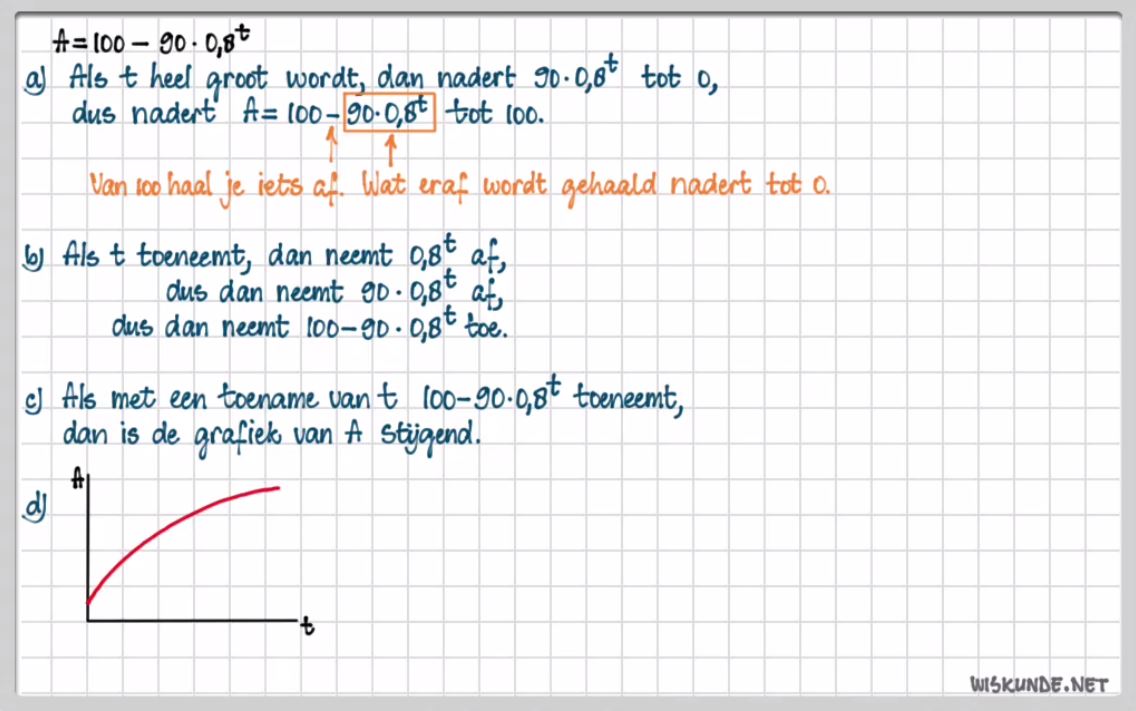 A = 100 − 90 · 0,8ᵗ
a) Als t heel groot wordt, dan nadert 90 · 0,8ᵗ tot 0,
dus nadert A = 100 − 90 · 0,8ᵗ tot 100.
Van 100 haal je iets af. Wat eraf wordt gehaald nadert tot 0.
b) Als t toeneemt, dan neemt 0,8ᵗ af,
dus dan neemt 90 · 0,8ᵗ af,
dus dan neemt 100 − 90 · 0,8ᵗ toe.
c) Als met een toename van t 100 − 90 · 0,8ᵗ toeneemt,
dan is de grafiek van A stijgend.
d)
A
t
WISKUNDE.NET